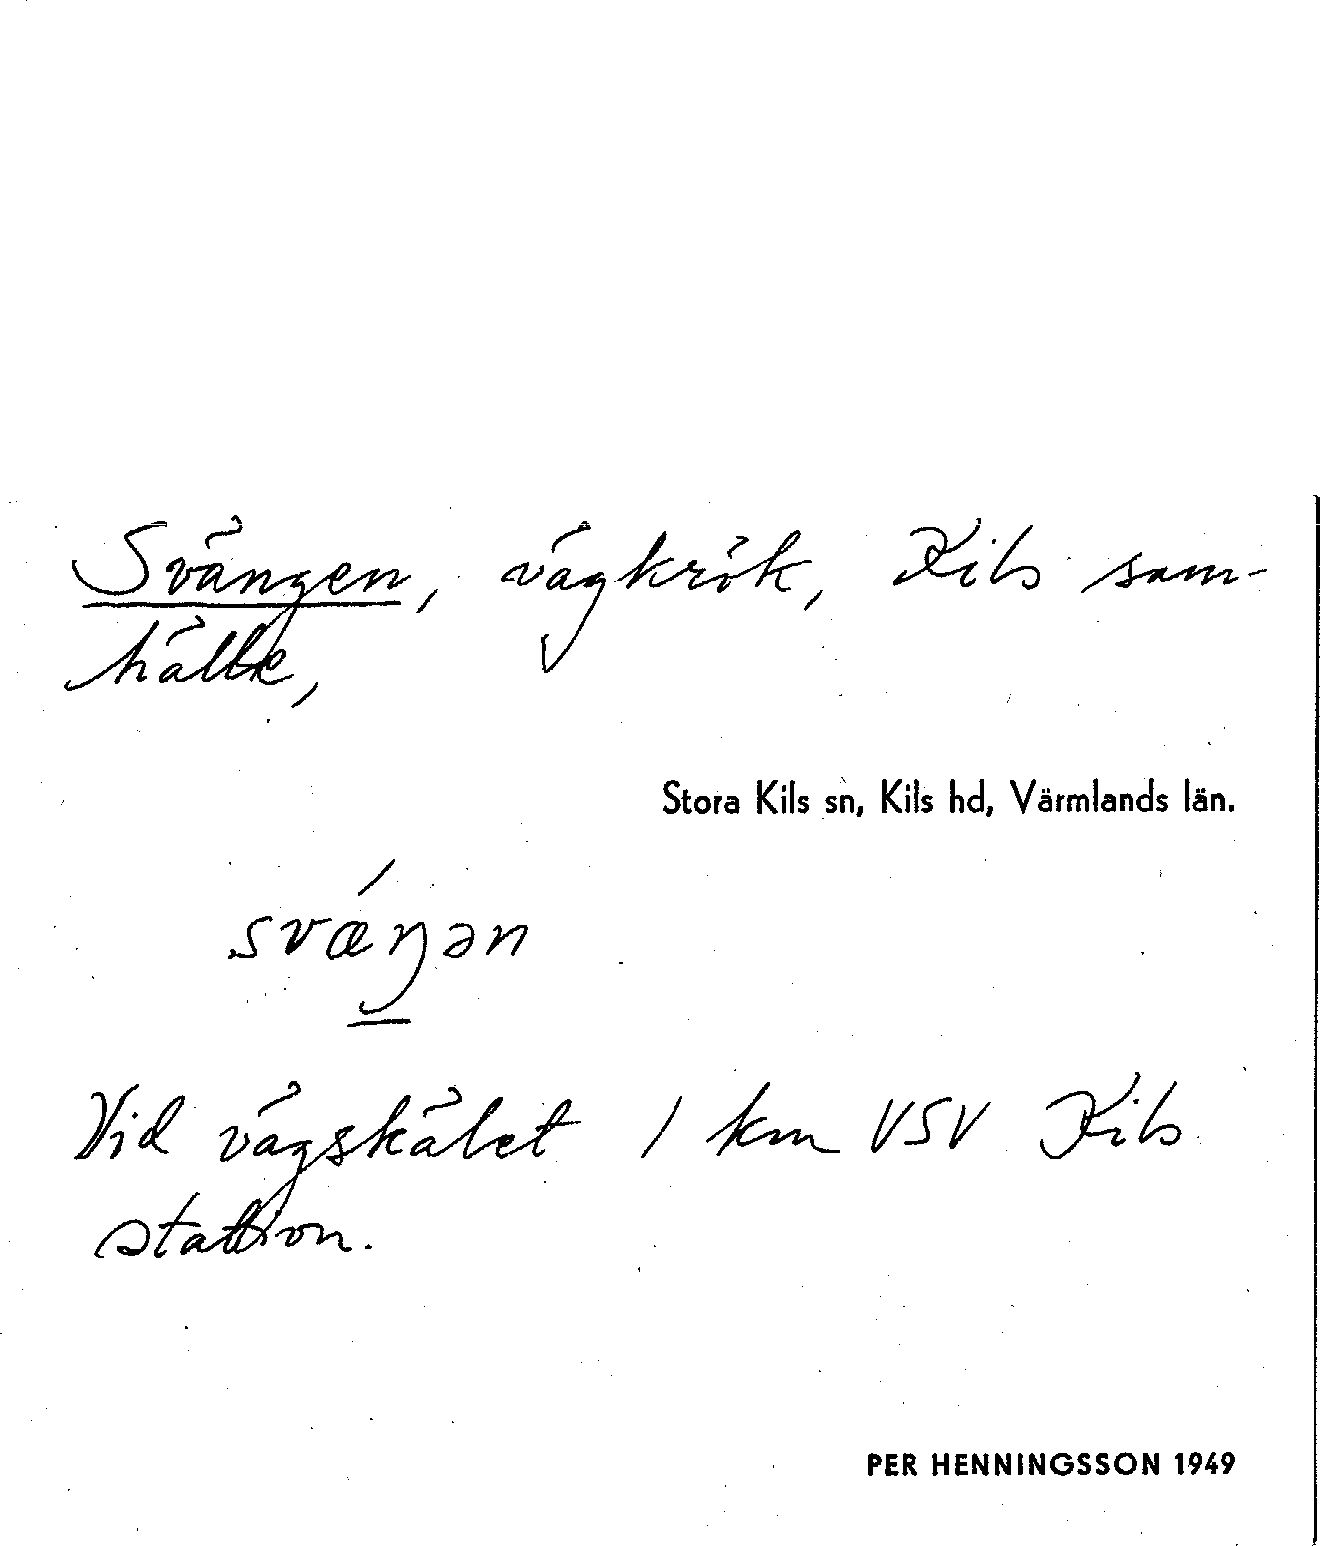 Svängen, vägkrök, Kils sam-
hälle,
Stora Kils sn, Kils hd, Värmlands län.
svǽŋən
Vid vägskälet 1 km VSV Kils
station.
PER HENNINGSSON 1949